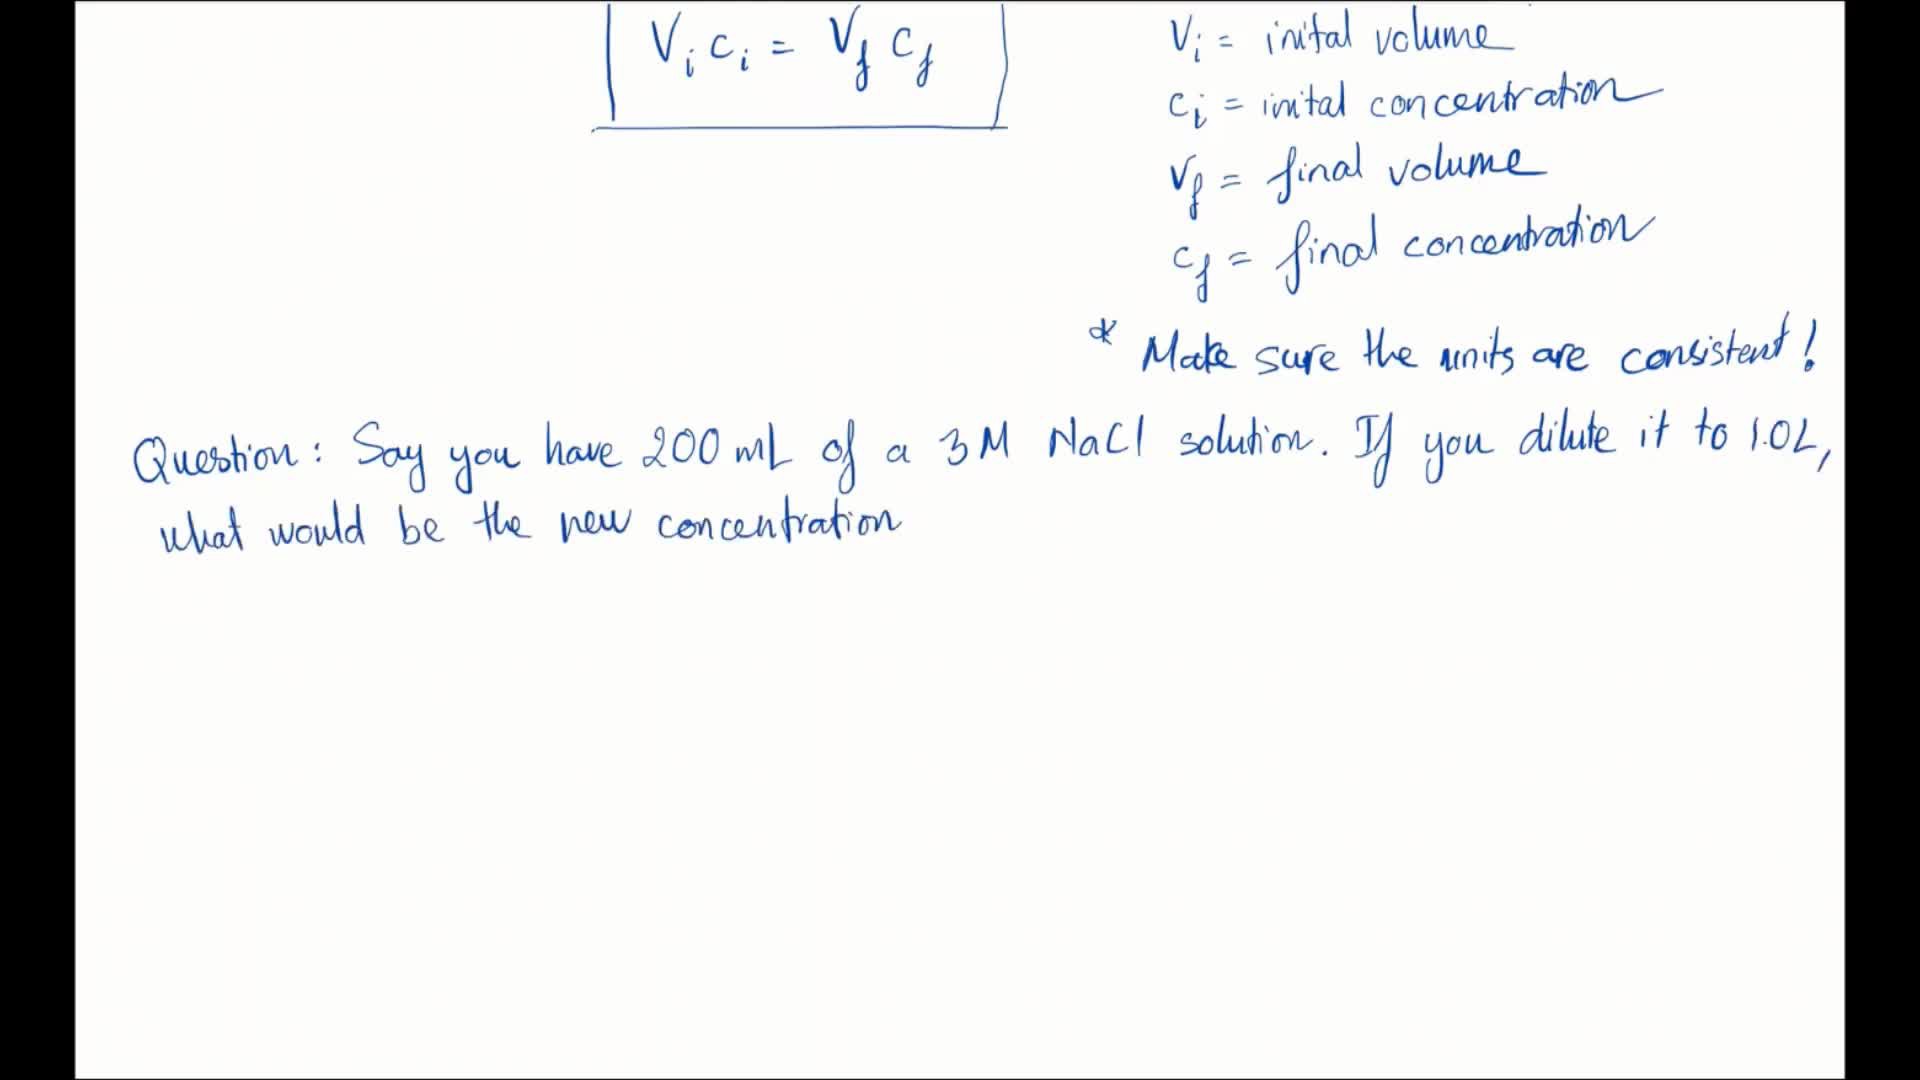 Vᵢ cᵢ = V_f c_f
Vᵢ = inital volume
cᵢ = inital concentration
V_f = final volume
c_f = final concentration
* Make sure the units are consistent!
Question: Say you have 200 mL of a 3M NaCl solution. If you dilute it to 1.0L,
what would be the new concentration